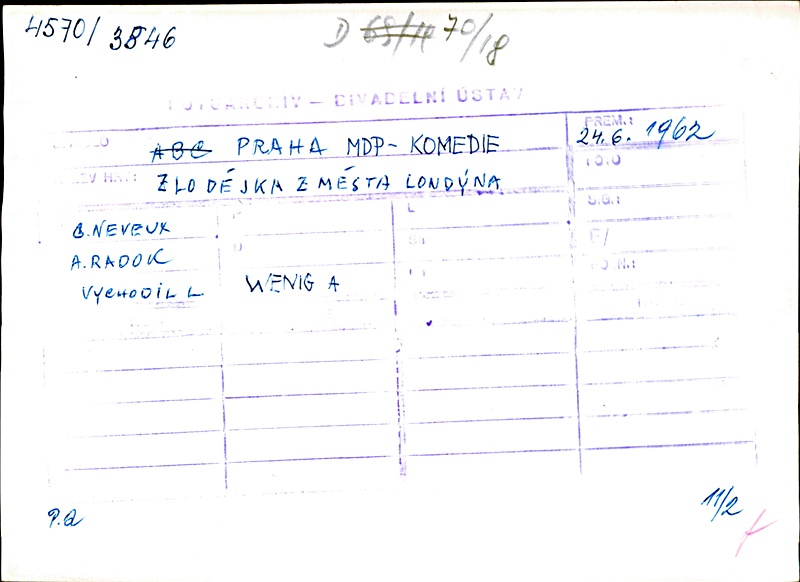 4570/ 3846
D 68/11 70/18
FOTOARCHIV – DIVADELNÍ ÚSTAV
ABC PRAHA MDP - KOMEDIE
PREM.:
24.6. 1962
ZLODĚJKA Z MĚSTA LONDÝNA
G. NEVEUX
A. RADOK
VYCHODIL L
WENIG A
P.Q
11/2